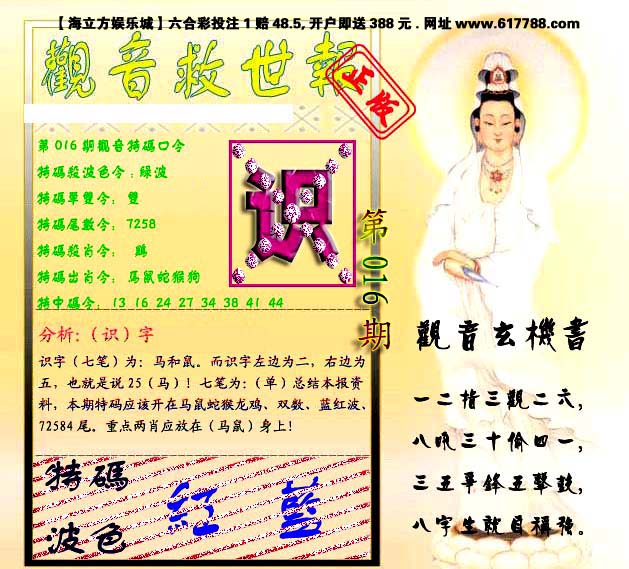 【海立方娱乐城】六合彩投注1赔48.5,开户即送388元.网址www.617788.com
觀音救世報
正版
第016期觀音特碼口令
特碼殺波色令:綠波
特碼單雙令: 雙
特碼尾數令: 7258
特碼殺肖令: 鷄
特碼出肖令: 馬鼠蛇猴狗
特中碼令: 13 16 24 27 34 38 41 44
识
第016期
分析:(识)字
识字(七笔)为:马和鼠。而识字左边为二,右边为
五,也就是说25(马)!七笔为:(单)总结本报资
料,本期特码应该开在马鼠蛇猴龙鸡、双数、蓝红波、
72584尾。重点两肖应放在(马鼠)身上!
特碼
波色
紅 藍
觀音玄機書
一二指三觀二六,
八吼三十偷四一,
三五爭鋒五擊鼓,
八字生就自稱強。